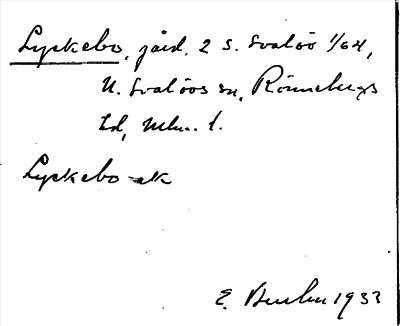 Lyckebo, gård, 2 S. Svalöv 1/64,
N. Svalövs sn, Rönnebergs
hd, Mlm. l.
Lyckebo -ek
E. 1933